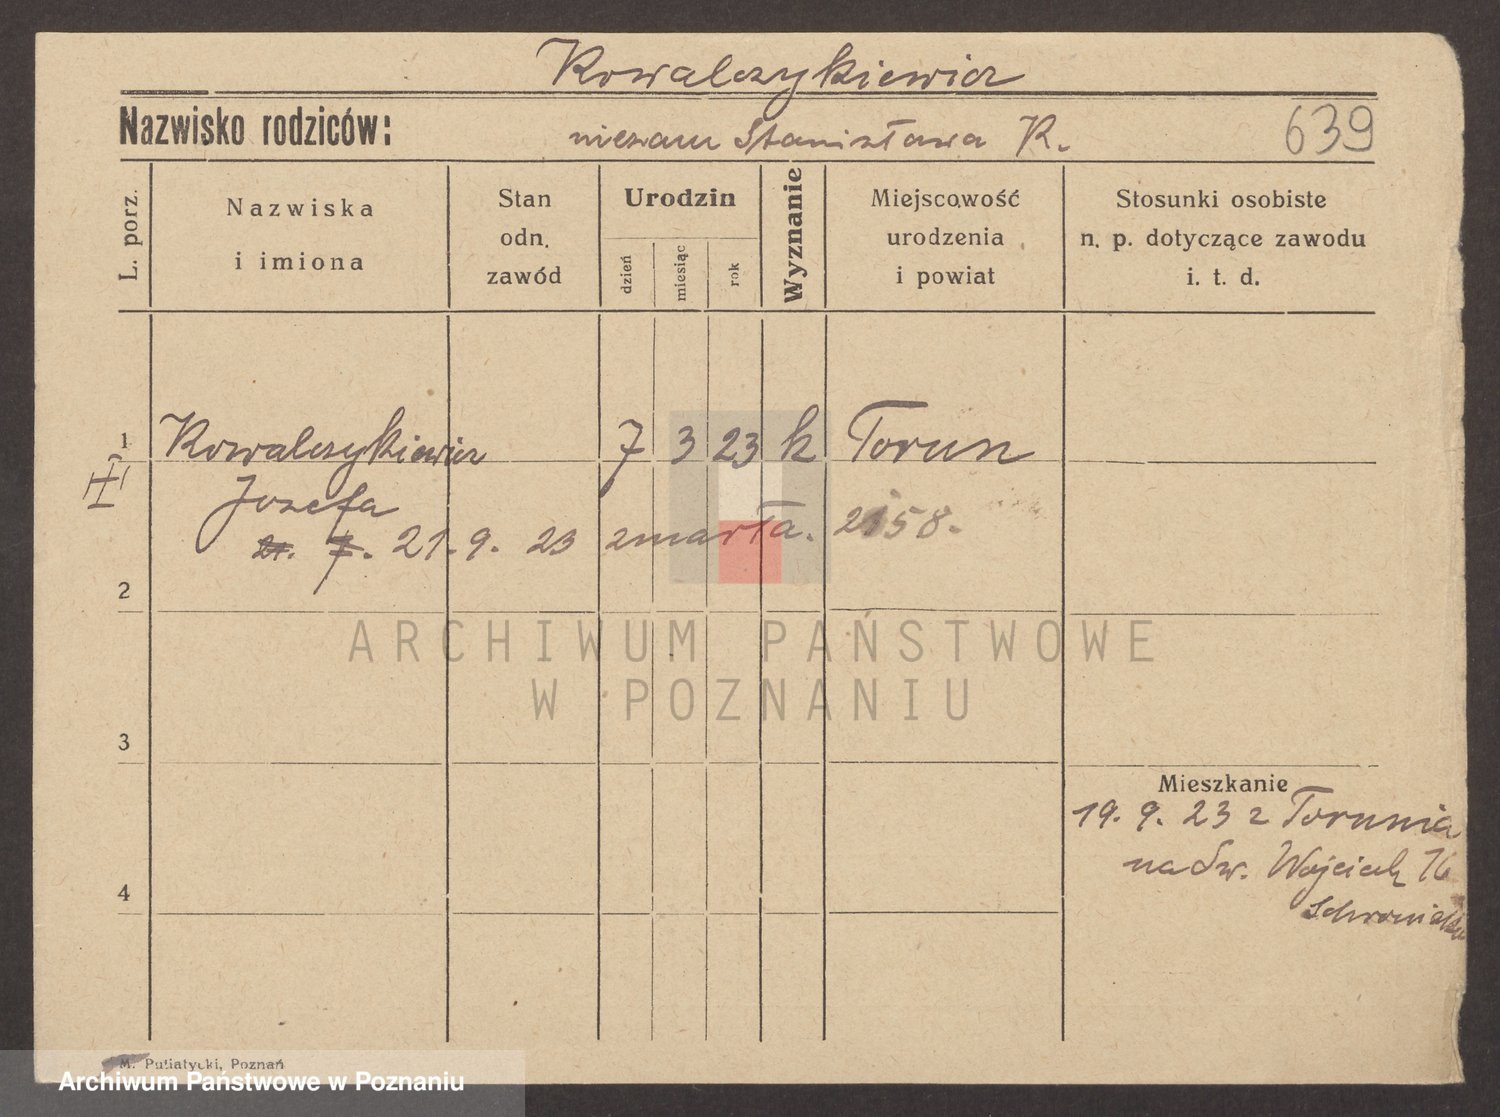 Kowalczykiewicz
Nazwisko rodziców:
niezam Stanisława K.
639
L. porz.
Nazwiska
i imiona
Stan
odn.
zawód
Urodzin
dzień
miesiąc
rok
Wyznanie
Miejscowość
urodzenia
i powiat
Stosunki osobiste
n. p. dotyczące zawodu
i. t. d.
1 Kowalczykiewicz 7 3 23 k Torun
III
Józefa
21. 7. 21. 9. 23 zmarła. 2158.
2
ARCHIWUM PAŃSTWOWE
W POZNANIU
3
Mieszkanie
19. 9. 23 z Torunia
na Św. Wojciech
4
M. Putiatycki, Poznań
Archiwum Państwowe w Poznaniu